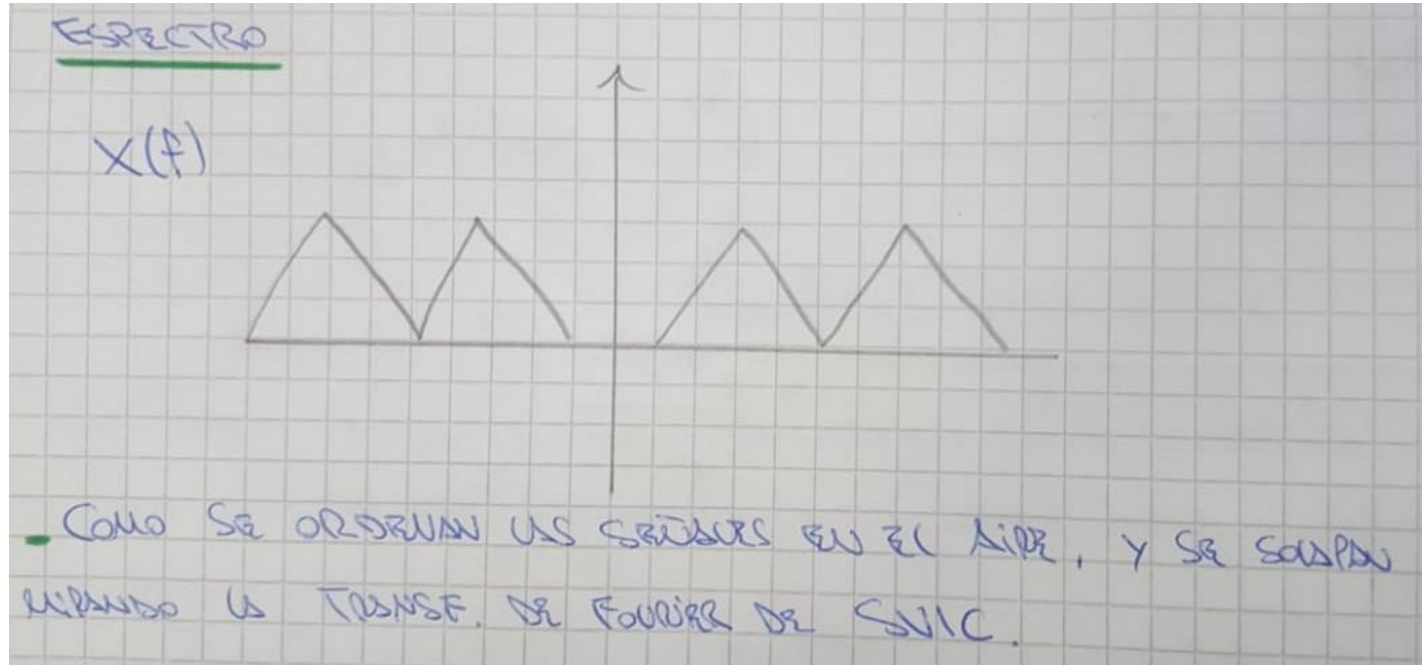 ESPECTRO
X(f)
COMO SE ORDENAN LAS SEÑALES EN EL AIRE, Y SE SOLAPAN
MIRANDO LA TRANSF. DE FOURIER DE